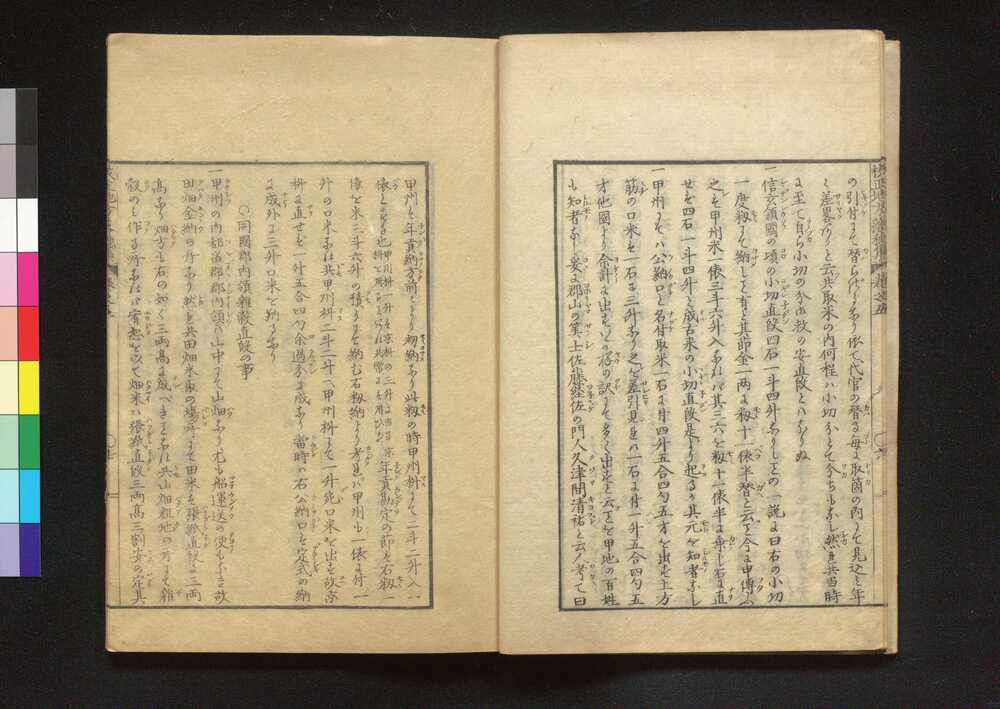 の引付にて替らざるなり依て代官の替る毎に取箇の内にを見込ミ年
ミ差畧ありと云共取米の内何程ハ小切分とて今ちも なし然る共当時
に至て自ら小切の分ハ救の安直段とハなりぬ
一信玄領國の頃の小切直段四石一斗四升なりしとの一説に曰右の小切
一度籾にて納しと有り其節金一両に籾十一俵半替と云ことを今に申傳ふ
之を甲州米一俵三斗六升入なれバ其三六を籾十一俵半に乗し石に直
せを四石一斗四升と成古来の小切直段是より起るか其元を知者なし
一甲州にてハ公納口と名付取米一石に付四升五合四勺五才を出を上方
筋の口米を一石に三升なり之を差引見バ一石に付一升五合四勺五
才他國より余計に出をの格の訳にて多く出をと云ことを甲地の百姓
も知者なし爰に郡山の藩士佐藤経佐の門人久津間清祐と云もの考て曰
甲州を年貢納方前より籾納なり此籾の時甲州枡にて二斗二升入一
俵とせる也 甲州枡一升を京枡の三升にあたる
枡と云るを今以共常に用ひる 年貢勘定の節を右籾一
俵を米三斗六升の積りを納む石籾納より考見バ甲州も一俵に付一
升の口米なれ共甲州枡二斗二升へ甲州枡にて一升宛口米を出を故京
枡に直せを一升五合四勺余過分に成なり當時ハ右公納口を定式の納
に成外に三升口米を納るなり
〇同國郡内領雑穀直段の事
一甲州の内都留郡郡内領ハ山中にて山畑なり尤も船運送の便もなき故
田畑金納の所なり然る共田畑米取の場所にて田米を張紙直段の三両
高なり畑方も右の如く三両高に成べきをなれ共山畑粗地の所にて雑
穀のミ作る所なれバ實想を以て畑米ハ張紙直段三両高三割安の定其